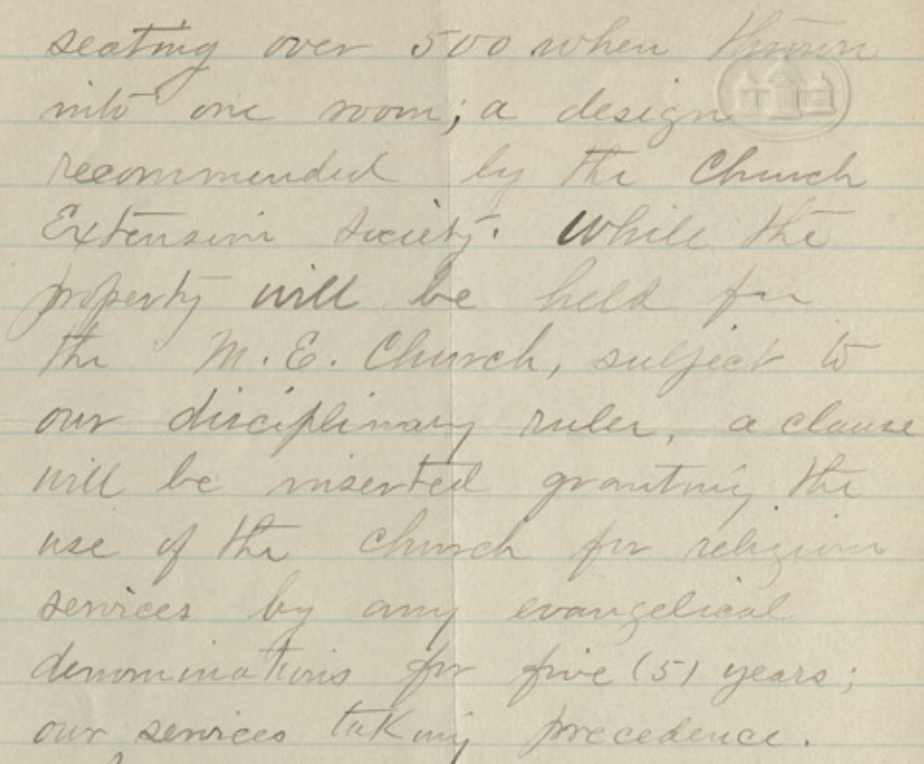 seating over 500 when thrown
into one room; a design
recommended by the Church
Extension Society. While the
property will be held for
the M. E. Church, subject to
our disciplinary rules, a clause
will be inserted granting the
use of the church for religious
services by any evangelical
denominations for five (5) years;
our services taking precedence.